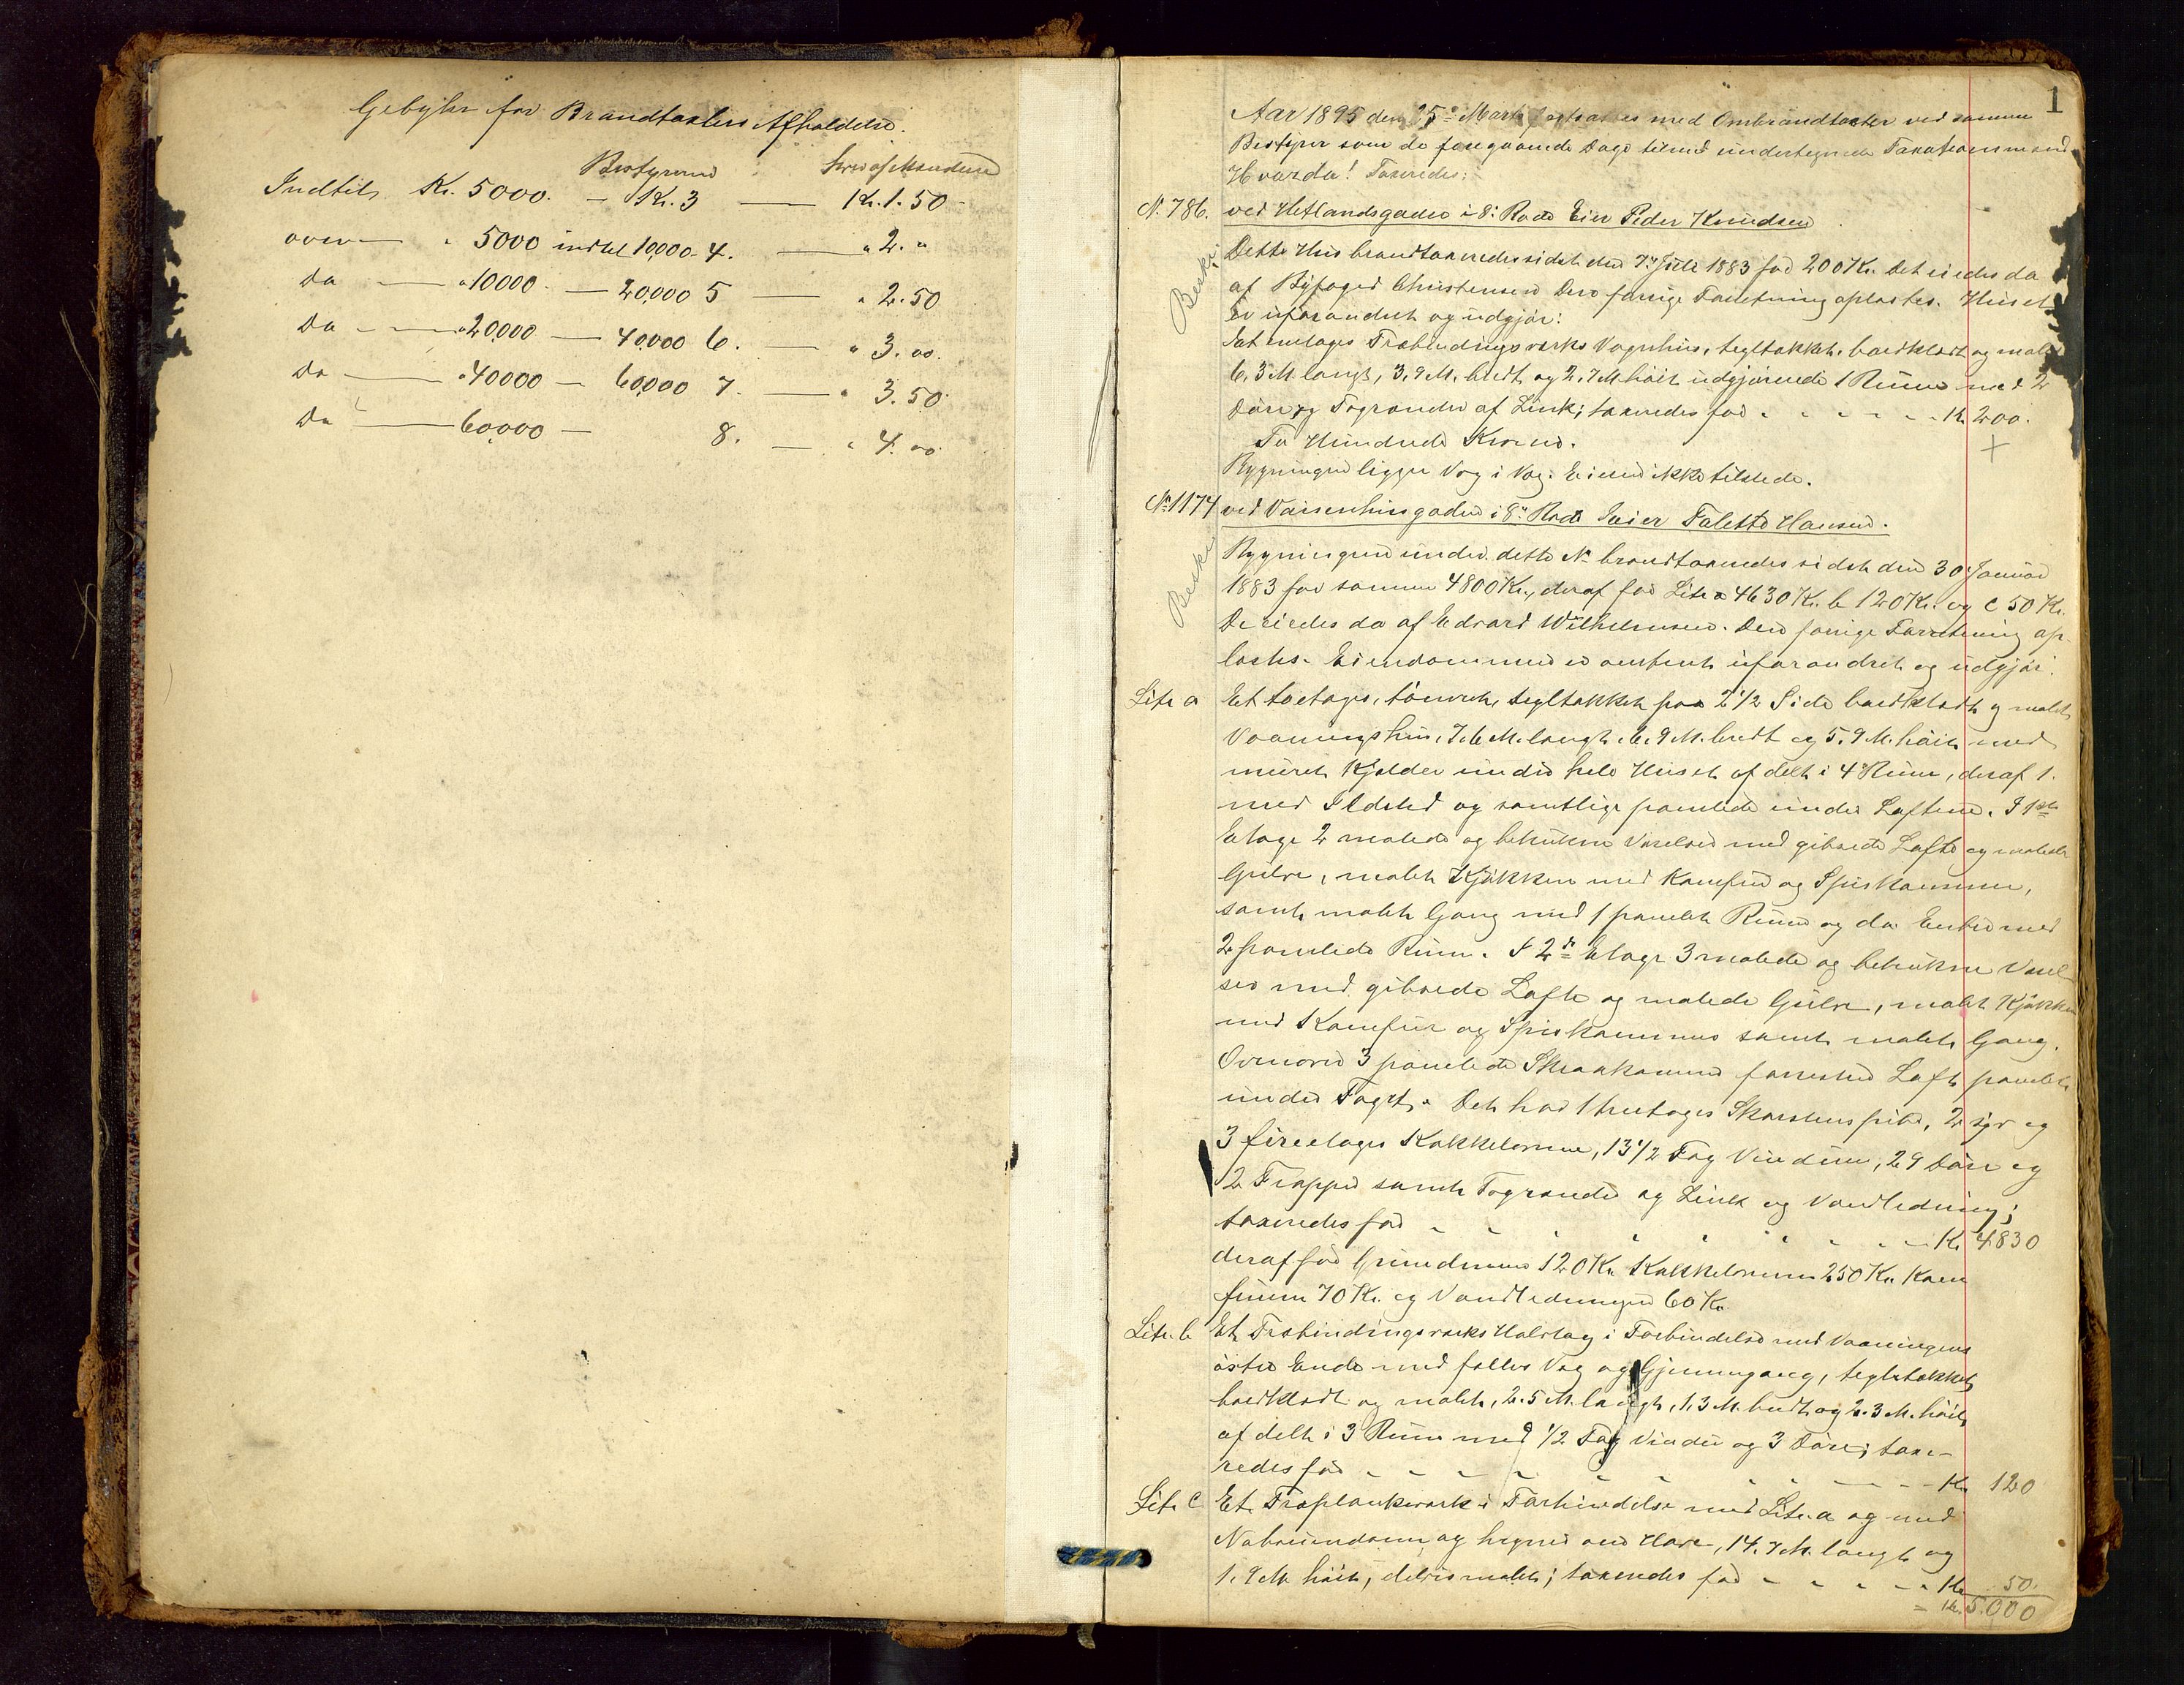 Gebyhr for Brandtaxters Afholdelse.
Bestyreren hver af Mændene
Indtil Kr. 5000. – Kr. 3 — Kr. 1.50
over — " 5000 indtil 10,000 - 4. — " 2. "
Do — " 10000 — 20,000 5 — " 2.50
Do — " 20,000 — 40,000 6. — " 3.00.
Do — " 40000 — 60,000 7. — " 3.50
Do — 60,000 — 8. — " 4.00
1
Aar 1895 den 5te Marts fortsattes med Ombrandtaxter ved samme
Bestyrer som de foregaaende Dage tilmed undertegnede Taxationsmænd
Hvorda! Taxeredes:
N. 786. ved Hetlandsgaden i 8de Rode Eier Peder Knudsen
Beskr.
Dette Hus brandtaxeredes sidst den 7de Juli 1883 for 200 Kr. Det eiedes da
af Byfoged Christensen Den forrige Forretning oplæstes. Huset
er uforandret og udgjør:
Et enetages Træbindingsværks Vognhus, tegltækket, bordklædt og malet
6,3 M. langt, 3,9 M. bredt og 2,7 M. høit udgjørende 1 Rum med 2
Døre og Tagrender af Zink; taxeredes for - - - - - - Kr. 200.
To Hundrede Kroner.
Bygningen ligger Væg i Væg. Eieren ikke tilstede.
No 1174 ved Vaisenhusgaden i 8de Rode Eier Talette Hansen.
Beskr.
Bygningerne under dette No brandtaxeredes sidst den 30 Januar
1883 for sammen 4800 Kr., deraf for Litr a 4630 Kr. b 120 Kr. og c 50 Kr.
De eiedes da af Edvard Wilhelmsen. Den forrige Forretning op-
læstes. Eiendommen er omtrent uforandret og udgjør:
Litr a Et toetages, tømret, tegltækket paa 2 1/2 Side bordklædt og malet
Vaaningshus, 7.6 M. langt, 6,9 M. bredt og 5.9 M. høit med
muret Kjælder under hele Huset afdelt i 4 Rum, deraf 1.
med Ildsted og samtlige panelede under Loftene. I 1ste
Etage 2 malede og betrukne Værelser med gibsede Lofte og malede
Gulve, malet Kjøkken med Komfur og Spiskammer,
samt malet Gang med 1 panelet Rum og do Entre med
2 panelede Rum. I 2de Etage 3 malede og betrukne Værel-
ser med gibsede Lofte og malede Gulve, malet Kjøkken
med Komfur og Spiskammer samt malet Gang.
Ovenover 3 panelede Skraakamre forresten Loft panelet
under Taget. Det har 1 treetages Skorstenspibe, 2 syv og
3 fireetages Kakkelovne, 13 1/2 Fag Vinduer, 29 Døre og
2 Trapper samt Tagrender og Zink og Vandledning;
taxeredes for - - - - - - - - Kr. 4830
deraf for Grundmuren 120 Kr. Kakkelovnene 250 Kr. Kom-
furene 70 Kr. og Vandledningen 60 Kr.
Litr. b Et Træbindingsværks Halvtag i Forbindelse med Vaaningens
østre Ende med fælles Væg og Gjennemgang, tegltækket
bordklædt og malet, 2.5 M. langt, 1,3 M. bredt og 2.3 M. høit
afdelt i 3 Rum med 1/2 Fag Vindu og 3 Døre; taxe-
redes for - - - - - - - - Kr. 120
Litr C Et Træplankeværk i Forbindelse med Litr. a og med
Naboeiendom og hegner om Have, 14.7 M. langt og
1.9 M. høit, delvis malet; taxeredes for - - - - - Kr. 50.
= Kr. 5.000